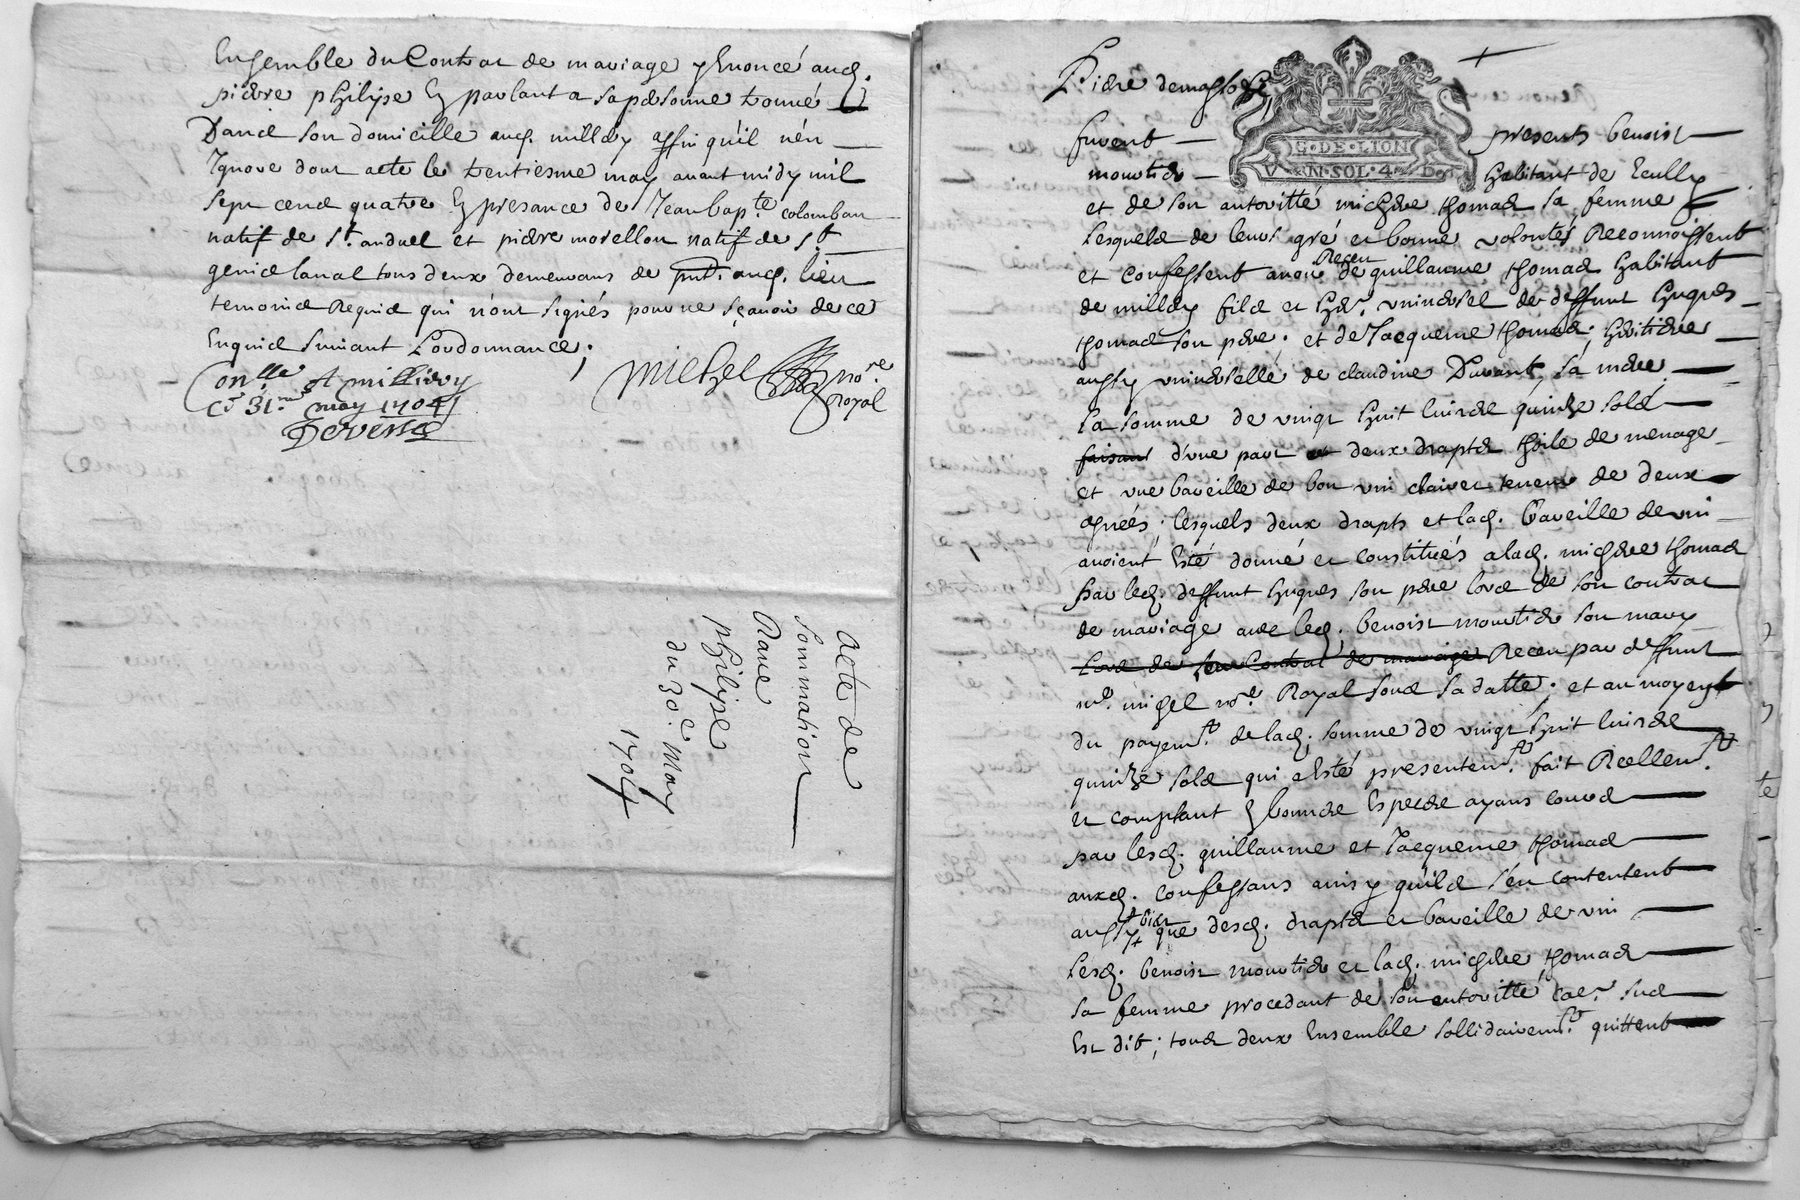 Ensemble du Contrat de mariage y Enoncé aud.
pierre philipe En parlant a sa personne trouvé
Dans son domicille aud. millery affin qu'il n'en
Ignore dont acte le trentiesme may avant midy mil
sept cens quatre En presance de Jean bap.te colomban
natif de s.t anduel et pierre morellon natif de s.t
genis laval tous deux demeurans de pnt. aud. lieu
temoins Requis qui n'ont signés pour ne sçavoir de ce
Enquis suivant L'ordonnance;
Conlle A milliery
ce 31.me may 1704
michel no.re
Royal
acte de
sommation
philipe
du 30.e May
1704
furent presents benoist
G·DE·LION
VN·SOL·4·D
habitant de Eully
et de son autoritté michere thomas sa femme
Lesquels de leurs gré et bonne volonté Reconnoissent
et confessent avoir Receu de guillaume thomas habitant
de millery fils et her. universel de deffunt hugues
thomas son pere. et de Jacqueme thomas; heritiere
aussy universelle de claudine Durant, sa mere
La somme de vingt huit livres quinze sols
faisant d'une part et deux drapts thoile de menage
et une bareille de bon vin clairet teneur de deux
asnées; lesquels deux drapts et lad. bareille de vin
avoient Esté donné et constitués a lad. michere thomas
par led. deffunt hugues son pere lors de son contrat
de mariage avec led. benoist mourtier son mary
Lors de son Contrat de mariage Receu par deffunt
m.e michel no.re Royal sous sa datte; et au moyent
du payem.t de lad. somme de vingt huit livres
quinze sols qui a Esté presentem.t fait Reellem.t
et comptant En bonnes Especes ayans cours
par lesd. guillaume et Jacqueme thomas
auxd. confessans ainsy qu'ils s'en contentent
aussy bien que desd. drapts et bareille de vin
Lesd. benoist mourtier et lad. michere thomas
sa femme procedant de son autoritté co.e sus
Est dit; tous deux Ensemble sollidairem.t quittent